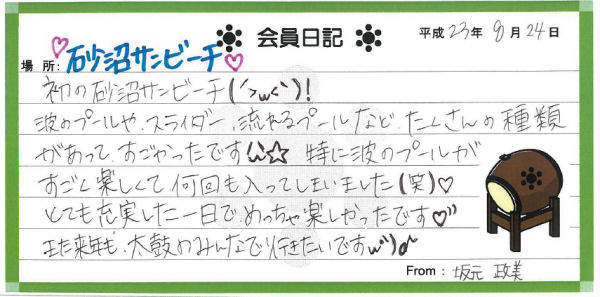 会員日記
平成23年8月24日
場所:砂沼サンビーチ
初の砂沼サンビーチ(´>ω<`)!
波のプールや、スライダー、流れるプールなど、たくさんの種類
があって、すごかったです^^☆ 特に波のプールが
すごく楽しくて何回も入ってしまいました(笑)♡
とても充実した一日で、めっちゃ楽しかったです♡
また来年も、太鼓のみんなで行きたいです
From:坂元 政美